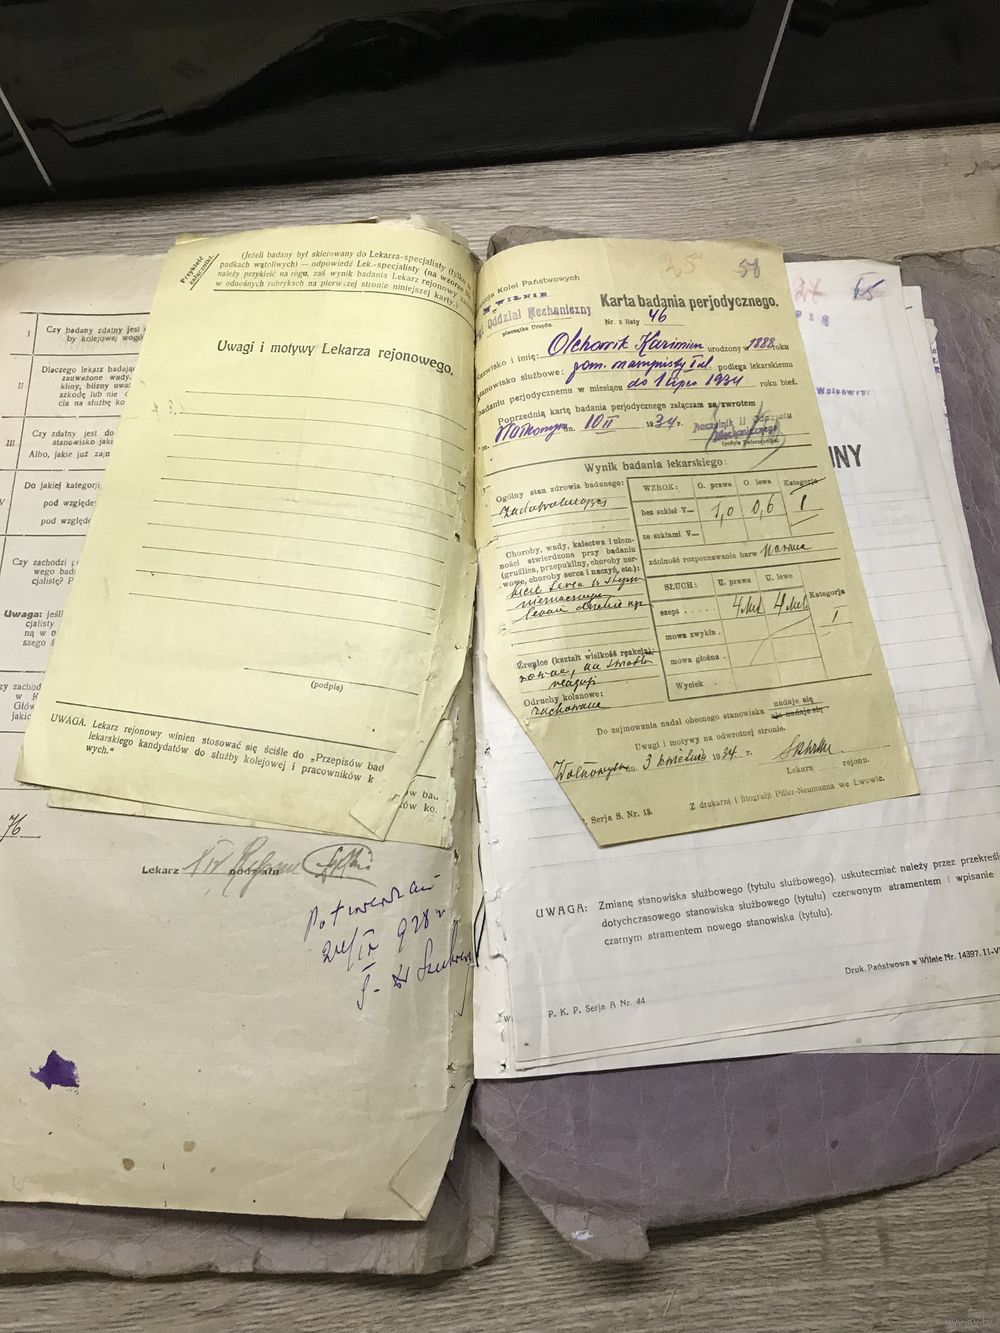 I
Czy badany zdatny jest
by kolejowej wogó
II
Dlaczego lekarz badają
zauważone wady,
kliny, bliźny
szkodę lub nie
cia na służbę ko
III
Czy zdatny jest do
stanowisko jaki
Albo, jakie już zajm
V
Do jakiej kategorj
pod względe
pod względe
Czy zachodzi p
wego bada
cjalisty? P
Uwaga: jeśli
cjalisty
ną w o
szego ś
zy zachod
w K
Głów
jakic
76
Lekarz IV oddziału
24/IV 928 r
Przykleić
załączniki.
(Jeżeli badany był skierowany do Lekarza-specjalisty (tylko
padkach wątpliwych) — odpowiedź Lek.-specjalisty (na wzorze
należy przykleić na rogu, zaś wynik badania Lekarz rejonowy
w odnośnych rubrykach na pierwszej stronie niniejszej karty.)
Uwagi i motywy Lekarza rejonowego.
(podpis)
UWAGA. Lekarz rejonowy winien stosować się ściśle do „Przepisów bad
lekarskiego kandydatów do służby kolejowej i pracowników k
wych."
ów bad
ów ko.
25 58
cja Kolei Państwowych
W WILNIE
Oddział Mechaniczny
pieczątka Urzędu
Karta badania perjodycznego.
Nr. z listy 46
Nazwisko i imię: Olchowik Kazimierz urodzony w 1888 roku
stanowisko służbowe: pom. maszynisty podlega lekarskiemu
badaniu perjodycznemu w miesiącu do 1 lipca 1934 roku bież.
Poprzednią kartę badania perjodycznego załączam za zwrotem
m. Wołkowysk dn. 10 II 1934 r.
Naczelnik II Oddziału
Mechanicznego
(podpis Zwierzchnika)
Wynik badania lekarskiego:
Ogólny stan zdrowia badanego:
zadawalniający
Choroby, wady, kalectwa i ułom-
ności stwierdzone przy badaniu
(gruźlica, przepukliny, choroby ner-
wowe, choroby serca i naczyń, etc.):
Źrenice (kształt wielkość reakcja):
równe, na światło
reagują
Odruchy kolanowe:
zachowane
WZROK: O. prawe O. lewe Kategorja
bez szkieł V— 1,0 0,6 I
ze szkłami V—
zdolność rozpoznawania barw Norma
SŁUCH: U. prawe U. lewe Kategorja
szept 4 Met 4 Met 1
mowa zwykła
mowa głośna
Wyciek
Do zajmowania nadal obecnego stanowiska nadaje się
nie nadaje się
Uwagi i motywy na odwrotnej stronie.
Wołkowysk dn. 3 kwietnia 1934 r.
Lekarz rejonu.
Serja S. Nr. 13.
Z drukarni i litografji Piller-Neumanna we Lwowie.
JNY
UWAGA: Zmianę stanowiska służbowego (tytułu służbowego), uskuteczniać należy przez przekreśl
dotychczasowego stanowiska służbowego (tytułu) czerwonym atramentem i wpisanie
czarnym atramentem nowego stanowiska (tytułu).
Druk. Państwowa w Wilnie Nr. 14397. 11-V
P. K. P. Serja A Nr. 44
www.ay.by